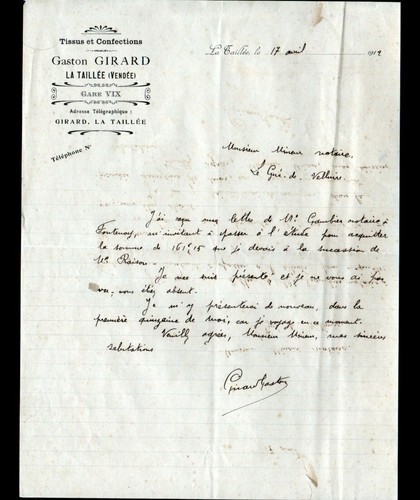 Tissus et Confections
Gaston GIRARD
LA TAILLÉE (VENDÉE)
GARE VIX
Adresse Télégraphique :
GIRARD, LA TAILLÉE
Téléphone N°
La Taillée, le 17 avril 1912
Monsieur notaire,
Le Gué-de-Velluire
J'ai reçu une lettre de Me notaire à
Fontenay, m'invitant à passer à l'étude pour acquitter
la somme de 161f15 que je devais à la succession de
Me Raison.
Je me suis présenté et je ne vous ai
vu, vous étiez absent.
Je m'y présenterai de nouveau, dans la
première quinzaine de mai, car je voyage en ce moment.
Veuillez agréer, Monsieur, mes sincères
salutations
Girard Gaston